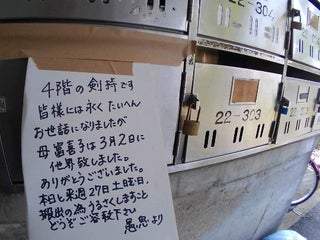 4階の剣持です
皆様には永くたいへん
お世話になりましたが
母富喜子は3月2日に
他界致しました。
ありがとうございました。
本日と来週27日土曜日、
搬出の為うるさくしますこと
どうぞご容赦下さい
愚息より
22-304
22-303